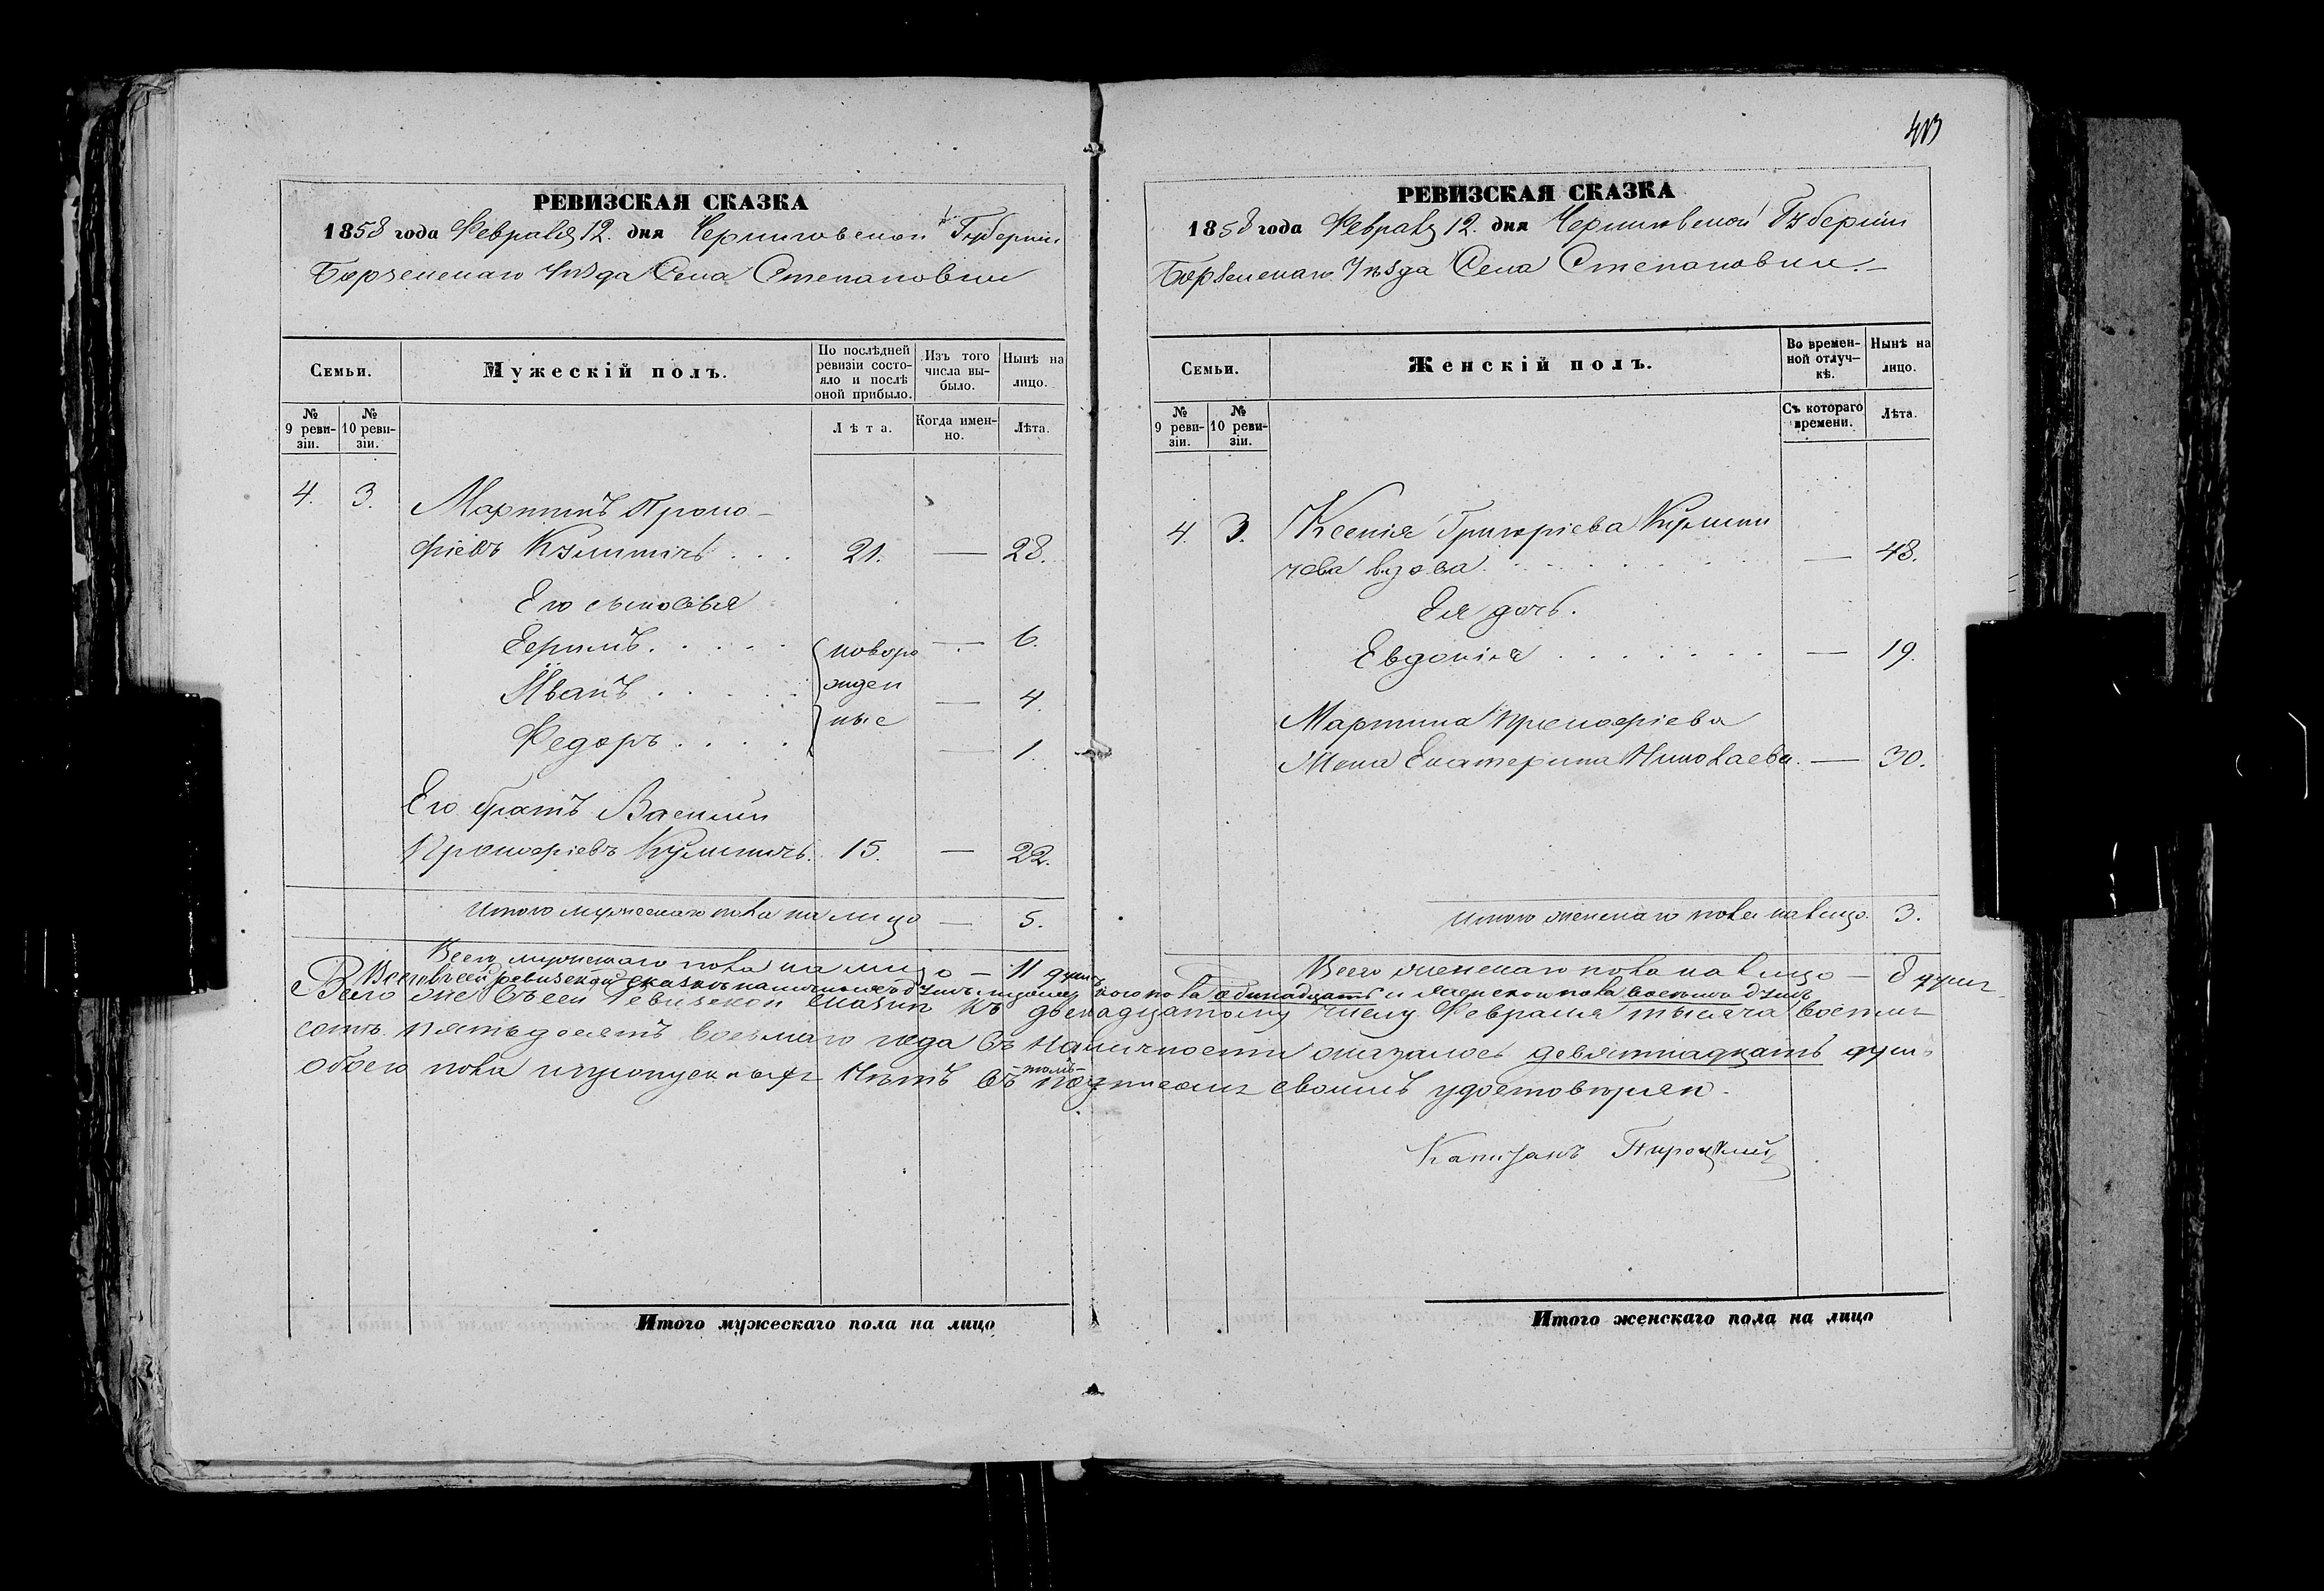 413
РЕВИЗСКАЯ СКАЗКА
1858 года Февраля 12. дня Черниговской Губерніи
Борзенскаго Уѣзда Села Степановки
Семьи.
Мужескій полъ.
По послѣдней ревизіи состояло и послѣ оной прибыло.
Изъ того числа выбыло.
Нынѣ на лицо.
№ 9 ревизіи.
№ 10 ревизіи.
Лѣта.
Когда именно.
Лѣта.
4. 3. Мартинъ Проко-
фіевъ 21. — 28.
Его сыновья
Ефимъ новоро — 6.
Иванъ жден — 4.
Федоръ ные — 1.
Его братъ Василій
Прокофіевъ 15. — 22.
Итого мужескаго пола на лицо — 5.
Всего мужескаго пола на лицо — 11 душъ
Итого мужескаго пола на лицо
РЕВИЗСКАЯ СКАЗКА
1858 года Февраля 12. дня Черниговской Губерніи
Борзенскаго Уѣзда Села Степановки. —
Семьи.
Женскій полъ.
Во временной отлучкѣ.
Нынѣ на лицо.
№ 9 ревизіи.
№ 10 ревизіи.
Съ котораго времени.
Лѣта.
4. 3. Ксенія Григоріева
вдова — 48.
Ея дочь.
Евдокія — 19.
Мартина Прокофіева
Жена Екатерина Николаева. — 30.
Итого женскаго пола на лицо. 3.
Всего женскаго пола на лицо — 8 душъ
Всего въ сей ревизской сказкѣ наличныхъ душъ мужескаго пола одинадцать и женскаго пола восемь душъ
Всего же въ сей Ревизской сказкѣ къ двенадцатому числу Февраля тысяча восемь
сотъ пятьдесятъ восьмаго года въ наличности оказалось девятнадцать душъ
обоего пола и пропускныхъ нѣтъ въ томъ подписомъ своимъ удостовѣряю.
Капитанъ Пироцкий
Итого женскаго пола на лицо